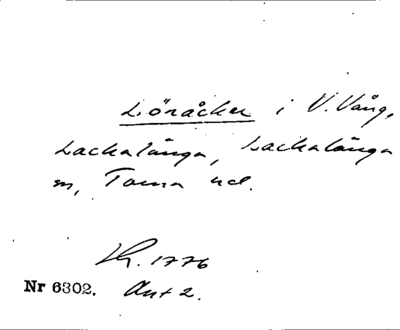 Löråcker i V. Vång,
Lackalänga, Lackalänga
sn, Torna hd.
Lh. 1776
Nr 6302. Akt 2.